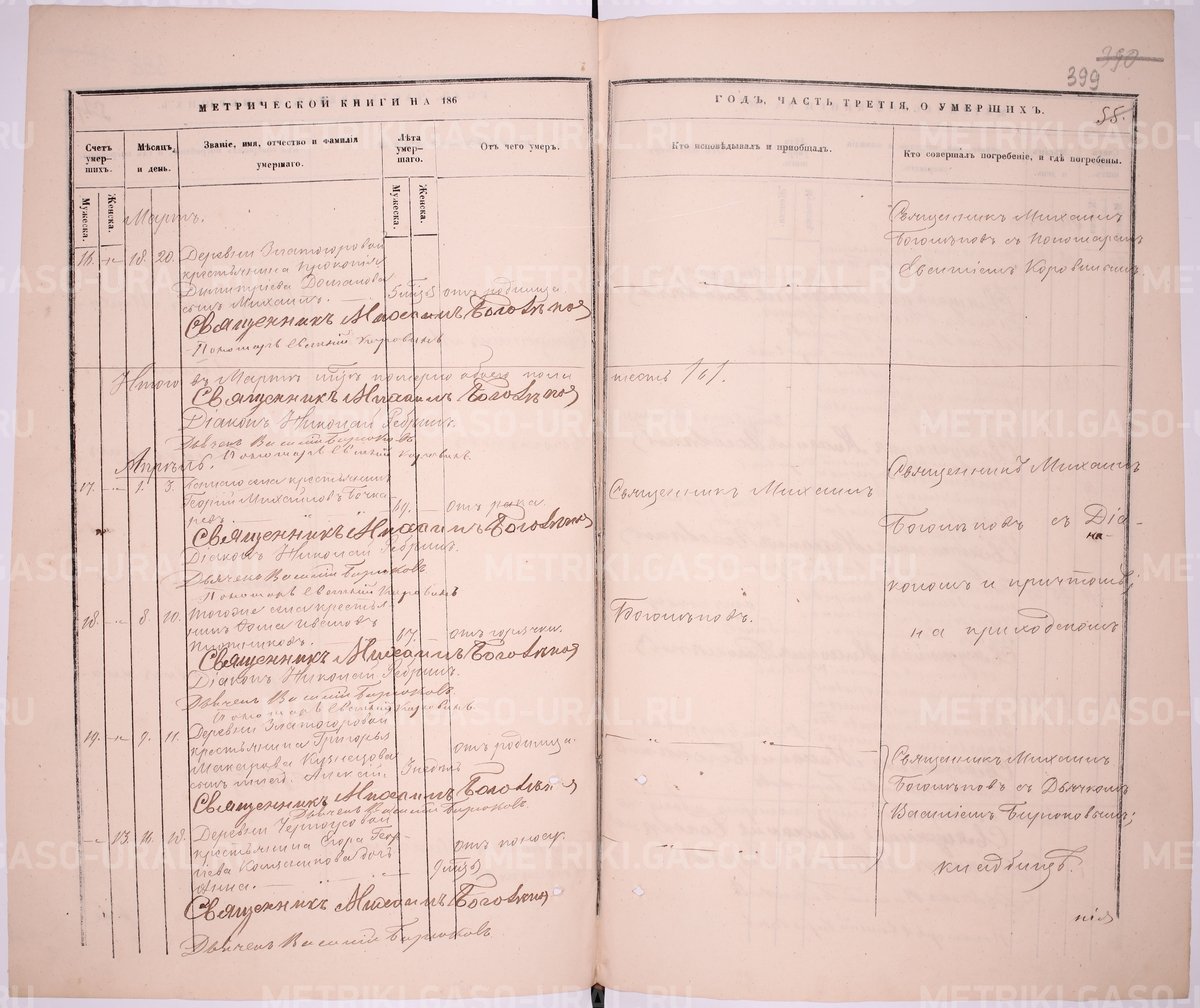 390
399
МЕТРИЧЕСКОЙ КНИГИ НА 186
ГОДЪ, ЧАСТЬ ТРЕТІЯ, О УМЕРШИХЪ.
55.
Счетъ умер-шихъ.
Мѣсяцъ и день.
Званіе, имя, отчество и фамилія
умершаго.
Лѣта умер-шаго.
Отъ чего умеръ.
Кто исповѣдывалъ и пріобщалъ.
Кто совершалъ погребеніе, и гдѣ погребены.
Мужеска.
Женска.
Мужеска.
Женска.
Мартъ.
16. 18. 20. Деревни Златогоровой
крестьянина Прокопія
Димитріева
сынъ Михаилъ. 5 отъ родимца.
Священникъ Михаилъ Боголѣповъ
Пономарь Евѳимій Коровинъ
Священникъ Михаилъ
Боголѣповъ съ Пономаремъ
Евѳиміемъ Коровинымъ
Итого въ Мартѣ м-цѣ померло обоего пола
шесть /6/.
Священникъ Михаилъ Боголѣповъ
Діаконъ Николай
Дьячекъ Василій Бирюковъ
Пономарь Евѳимій Коровинъ
Апрѣль.
17. 1. 3. села крестьянинъ
Георгій Михайловъ Бочка-
ревъ. 49. отъ рака.
Священникъ Михаилъ Боголѣповъ
Діаконъ Николай
Дьячекъ Василій Бирюковъ
Пономарь Евѳимій Коровинъ
Священникъ Михаилъ
Священникъ Михаилъ
Боголѣповъ съ Діа-
кономъ и причтомъ;
18. 8. 10. Тогоже села крестья-
нинъ Ѳома Ивановъ
67. отъ горячки.
Священникъ Михаилъ Боголѣповъ
Діаконъ Николай
Дьячекъ Василій Бирюковъ
Пономарь Евѳимій Коровинъ
Боголѣповъ.
на приходскомъ
19. 9. 11. Деревни Златогоровой
крестьянина Григорья
Макарова Кузнецова
сынъ Алексѣй. 3 недѣль отъ родимца.
Священникъ Михаилъ Боголѣповъ
Дьячекъ Василій Бирюковъ
Священникъ Михаилъ
Боголѣповъ съ Дьячкомъ
Василіемъ Бирюковымъ;
13. 16. 18. Деревни Черноусовой
крестьянина Егора Геор-
гіева дочь
Анна. 9 отъ поноса.
Священникъ Михаилъ Боголѣповъ
Дьячекъ Василій Бирюковъ
кладбищѣ.